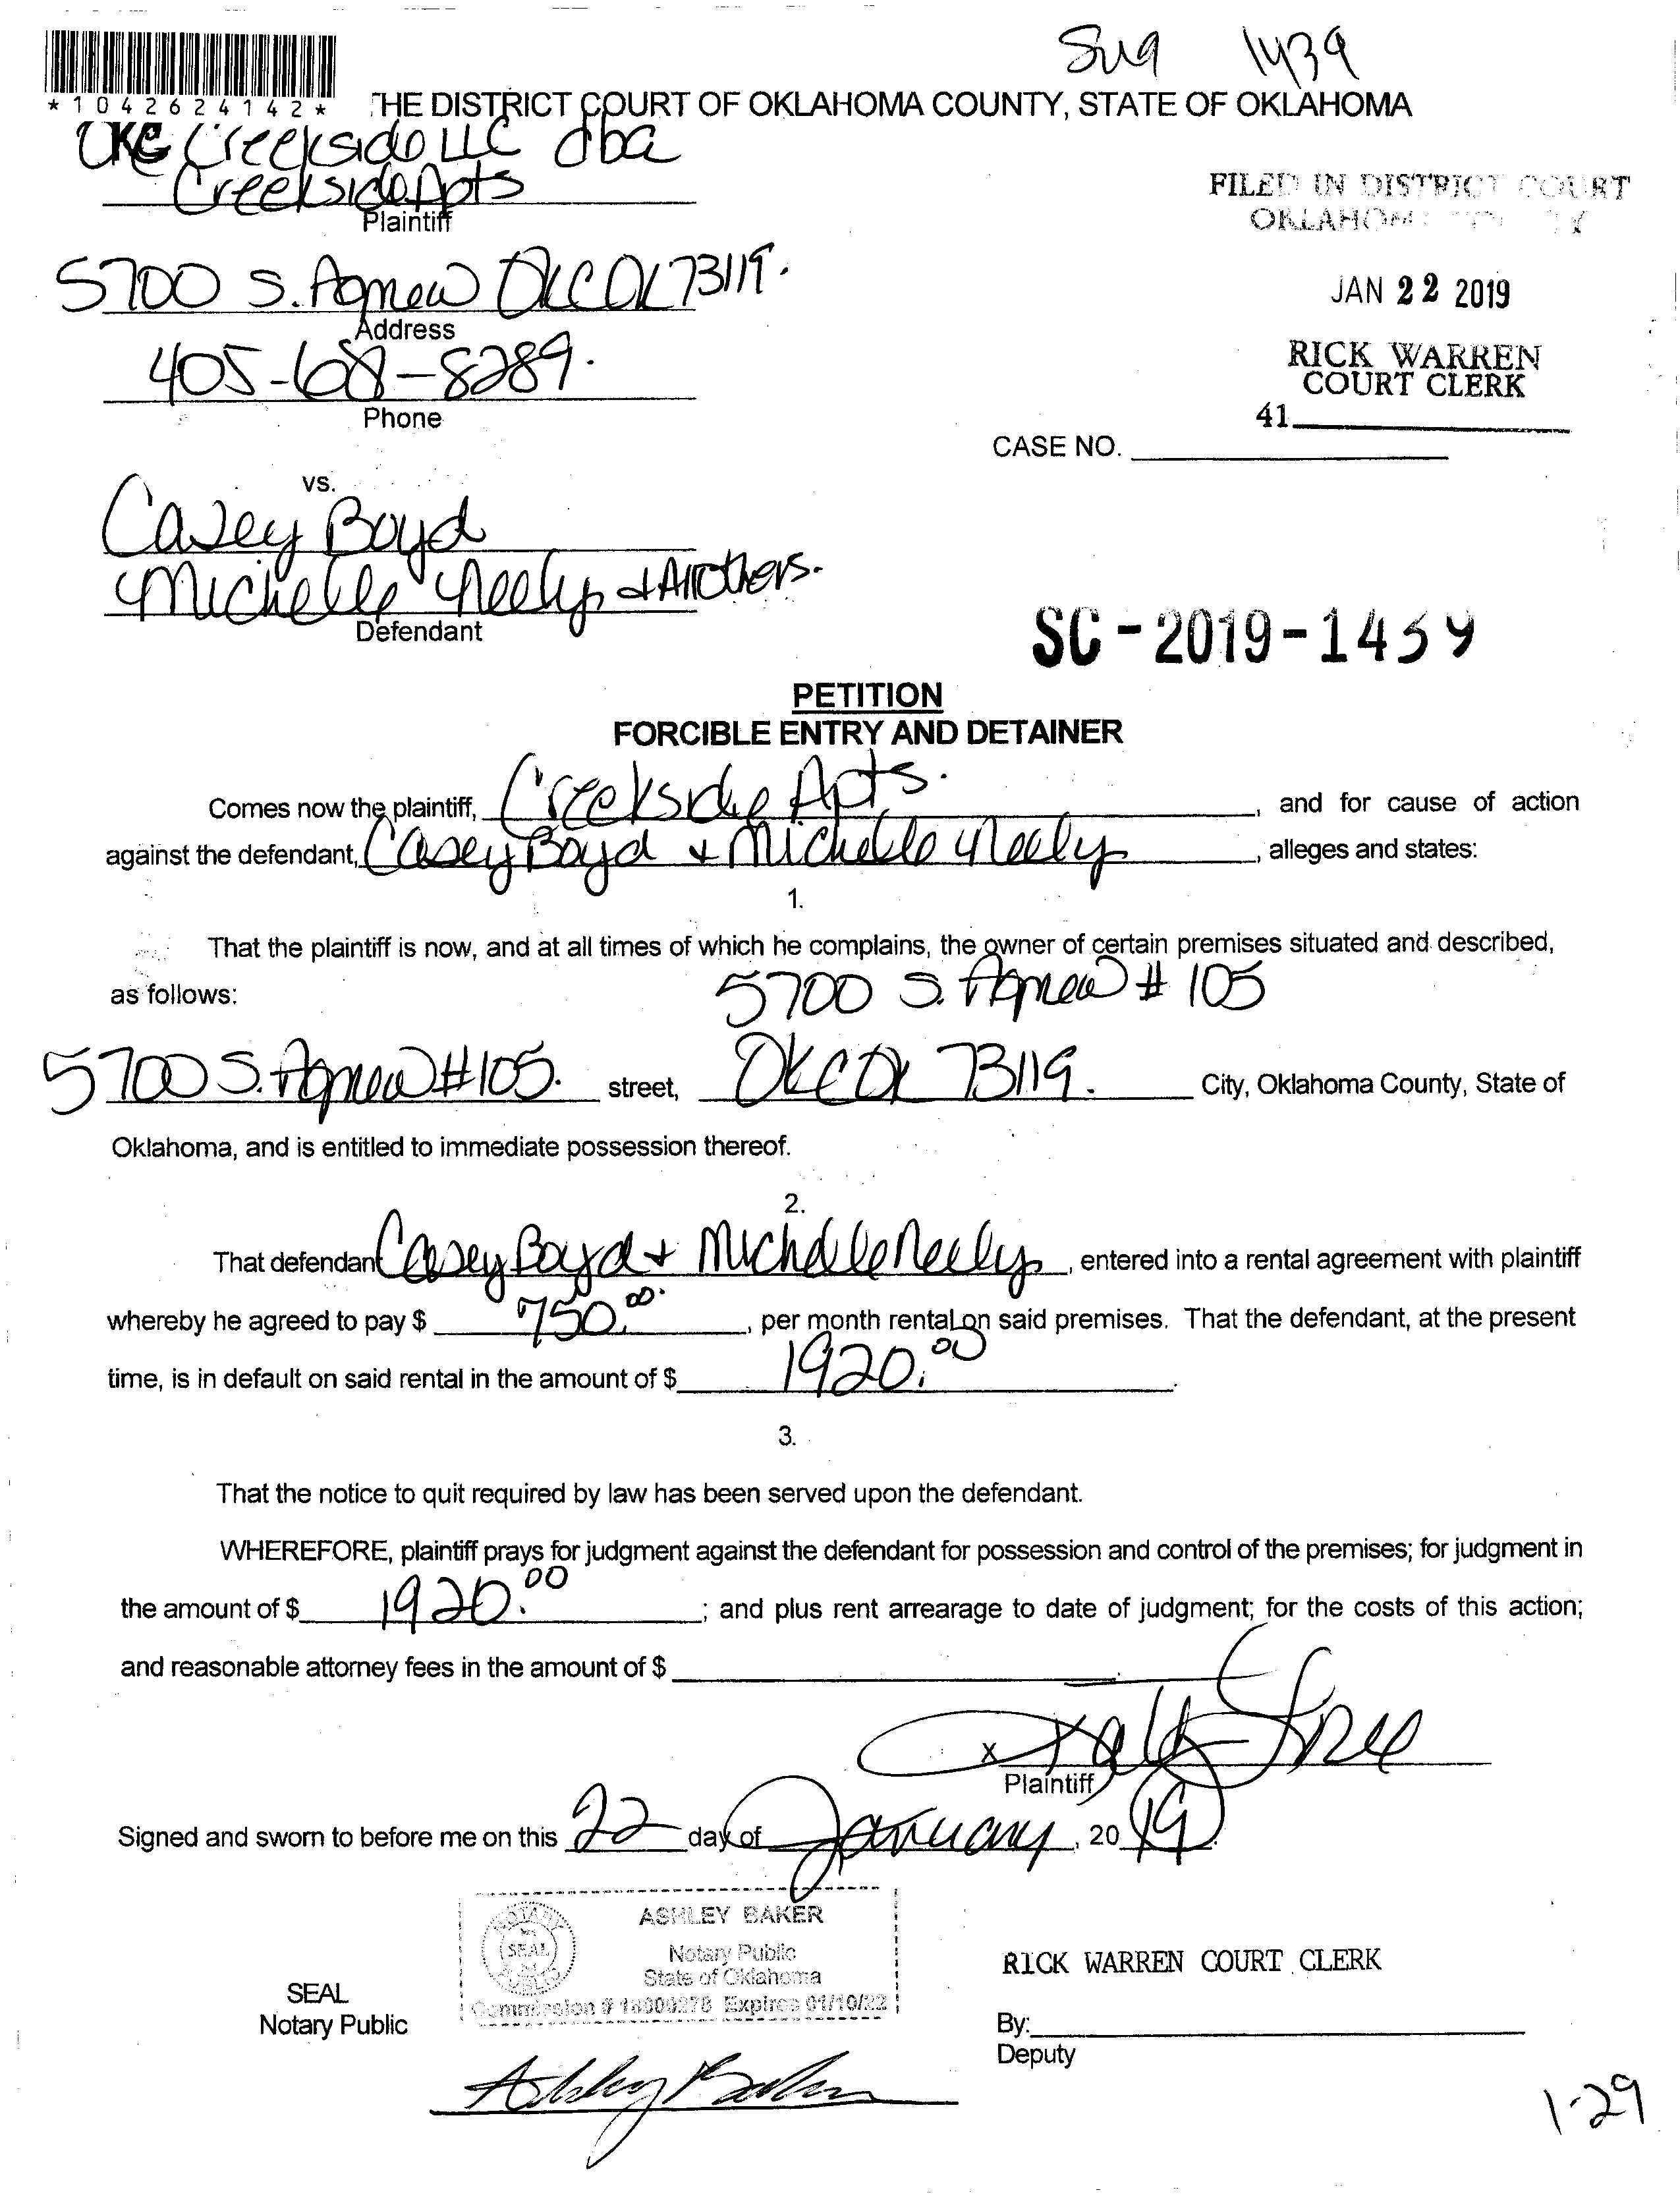 1439
*1042624142*
THE DISTRICT COURT OF OKLAHOMA COUNTY, STATE OF OKLAHOMA
OKC Creekside LLC dba
Creekside Apts
Plaintiff
FILED IN DISTRICT COURT
OKLAHOMA
5700 S. Agnew OKC OK 73119.
Address
JAN 22 2019
405-              -8289.
Phone
RICK WARREN
COURT CLERK
41
CASE NO.
vs.
Casey Boyd
Michelle Neely + All Others.
Defendant
SC-2019-1439
PETITION
FORCIBLE ENTRY AND DETAINER
Comes now the plaintiff, Creekside Apts., and for cause of action
against the defendant, Casey Boyd + Michelle Neely, alleges and states:
1.
That the plaintiff is now, and at all times of which he complains, the owner of certain premises situated and described,
as follows: 5700 S. Agnew # 105
5700 S. Agnew #105. street, OKC OK 73119. City, Oklahoma County, State of
Oklahoma, and is entitled to immediate possession thereof.
2.
That defendant Casey Boyd + Michelle Neely, entered into a rental agreement with plaintiff
whereby he agreed to pay $ 750.00, per month rental on said premises. That the defendant, at the present
time, is in default on said rental in the amount of $ 1920.00.
3.
That the notice to quit required by law has been served upon the defendant.
WHEREFORE, plaintiff prays for judgment against the defendant for possession and control of the premises; for judgment in
the amount of $ 1920.00; and plus rent arrearage to date of judgment; for the costs of this action;
and reasonable attorney fees in the amount of $
x
Plaintiff
Signed and sworn to before me on this 22 day of January, 2019.
ASHLEY BAKER
NOTARY
SEAL
PUBLIC
Notary Public
State of Oklahoma
Commission # 18000278 Expires 01/10/22
SEAL
Notary Public
Ashley Baker
RICK WARREN COURT CLERK
By:
Deputy
1-29